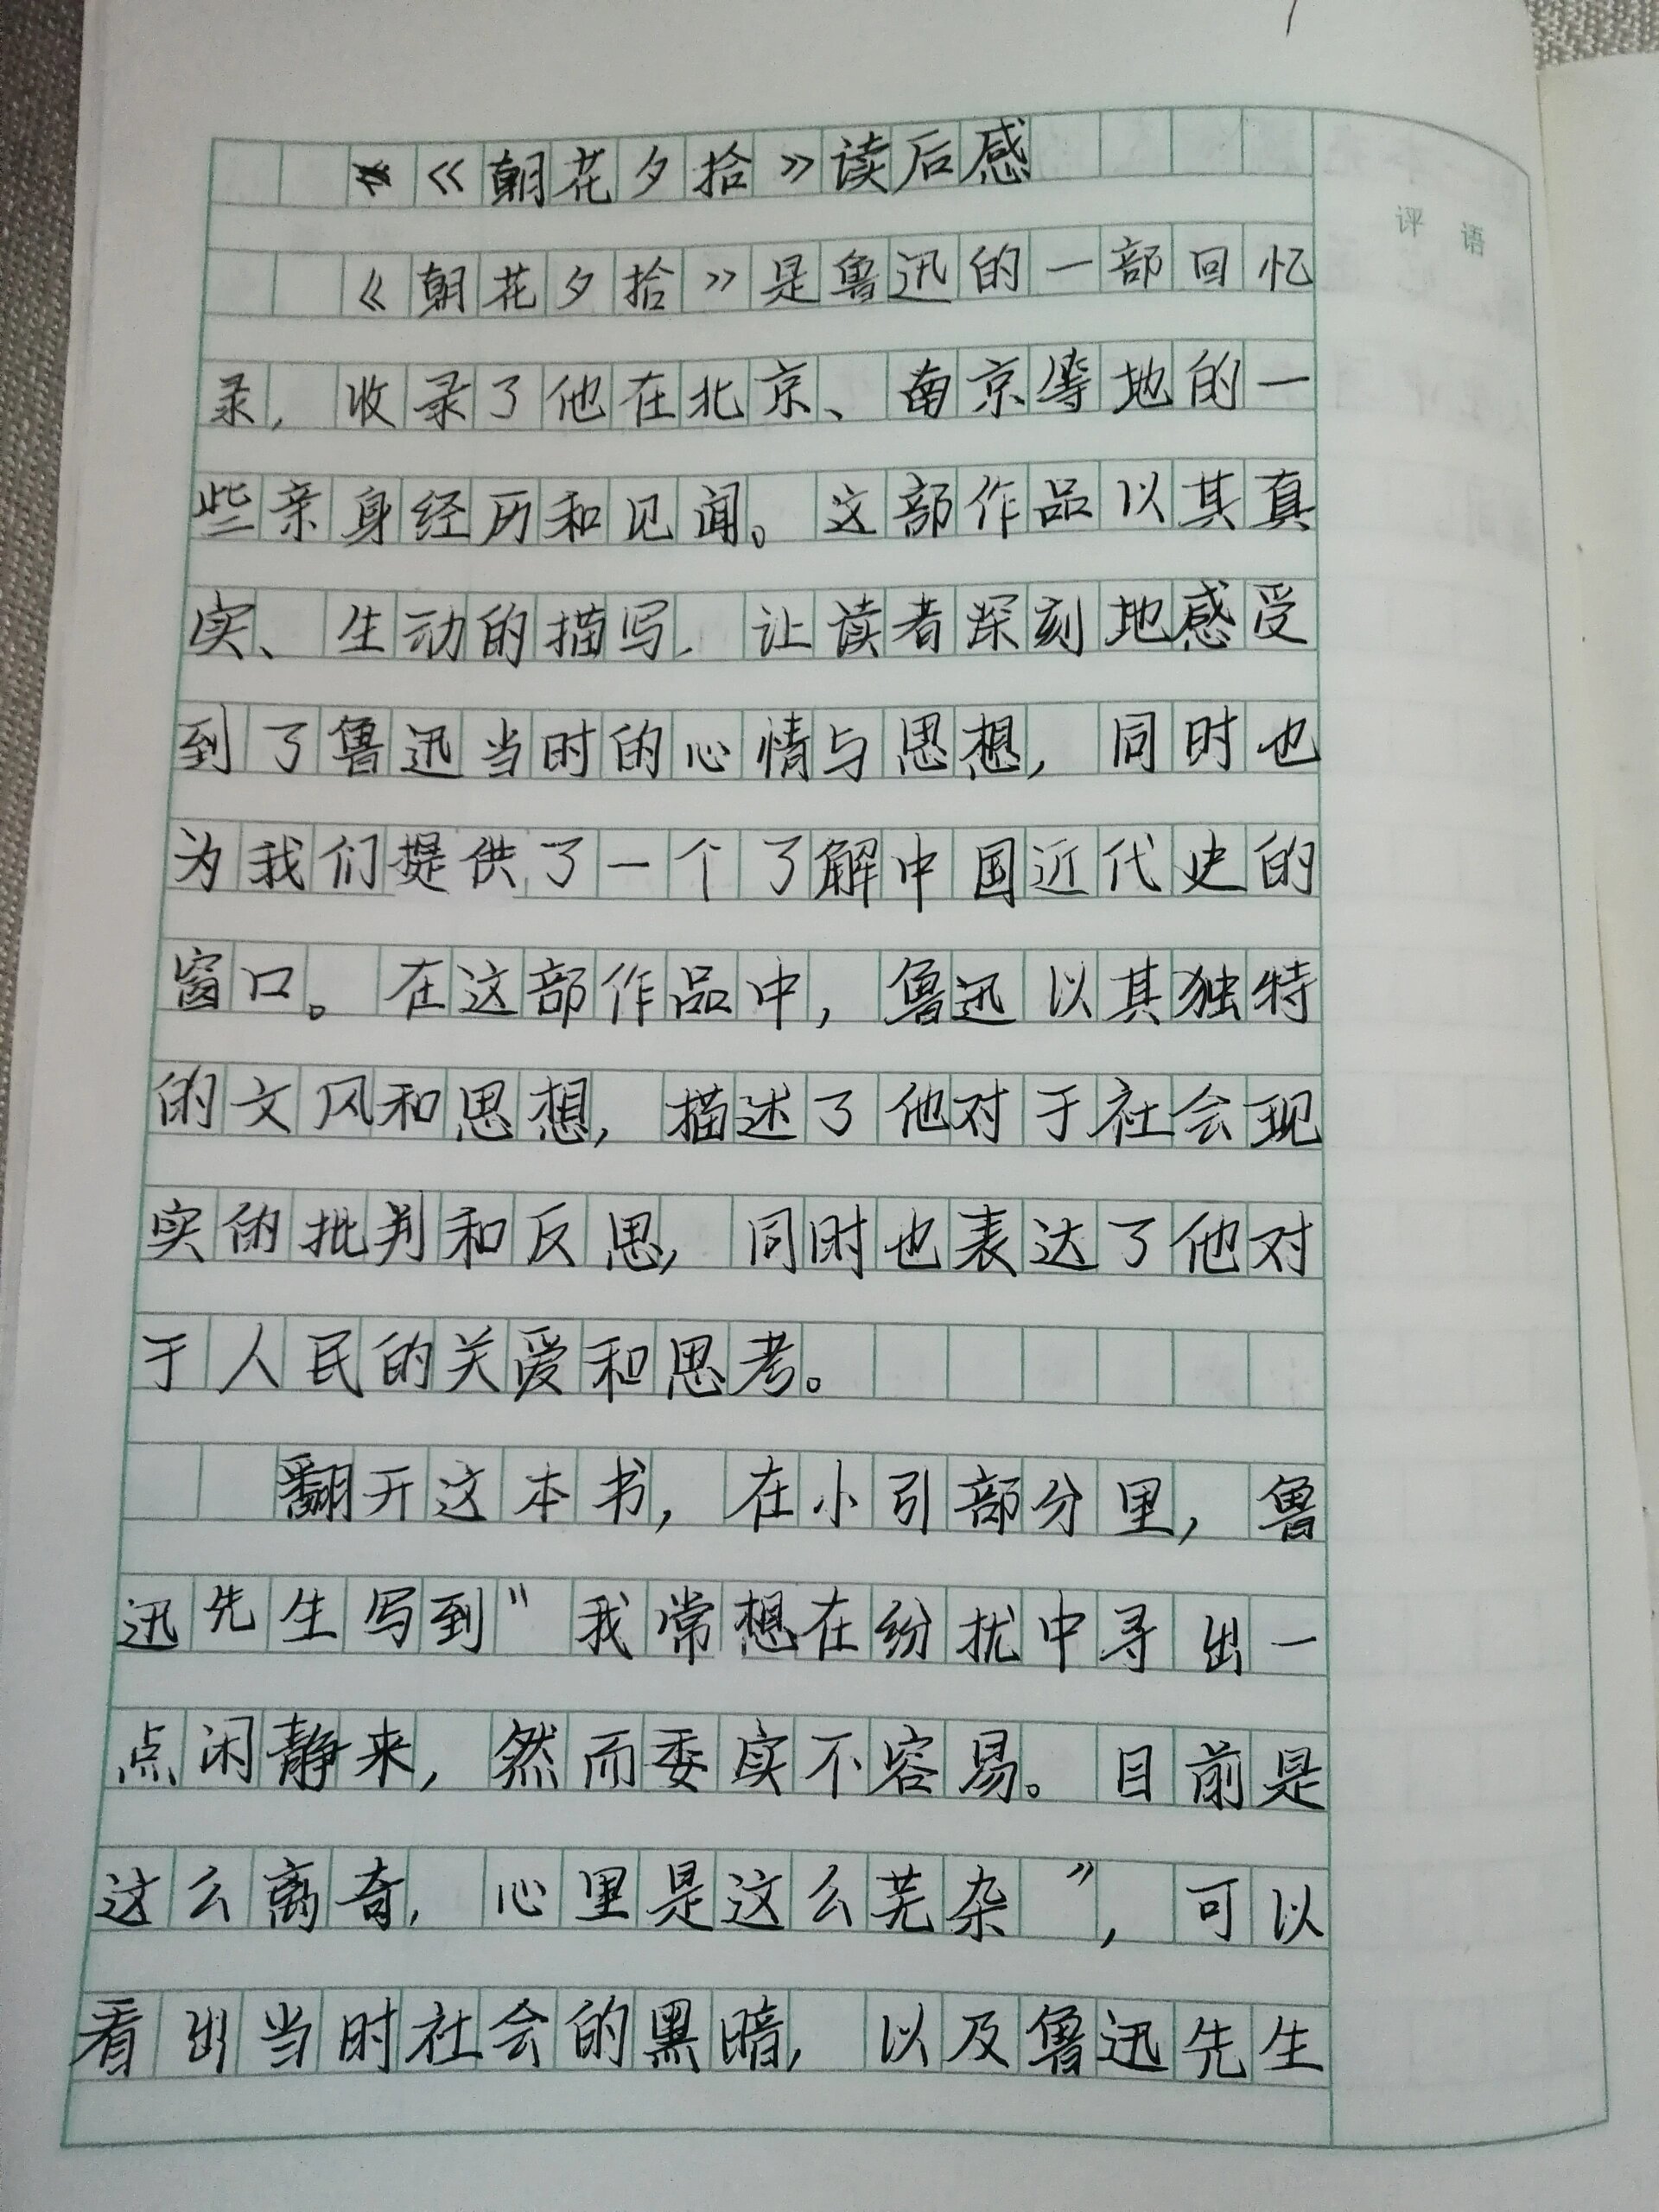 《朝花夕拾》读后感
评语
《朝花夕拾》是鲁迅的一部回忆
录,收录了他在北京、南京等地的一
些亲身经历和见闻。这部作品以其真
实、生动的描写,让读者深刻地感受
到了鲁迅当时的心情与思想,同时也
为我们提供了一个了解中国近代史的
窗口。在这部作品中,鲁迅以其独特
的文风和思想,描述了他对于社会现
实的批判和反思,同时也表达了他对
于人民的关爱和思考。
翻开这本书,在小引部分里,鲁
迅先生写到"我常想在纷扰中寻出一
点闲静来,然而委实不容易。目前是
这么离奇,心里是这么芜杂",可以
看出当时社会的黑暗,以及鲁迅先生